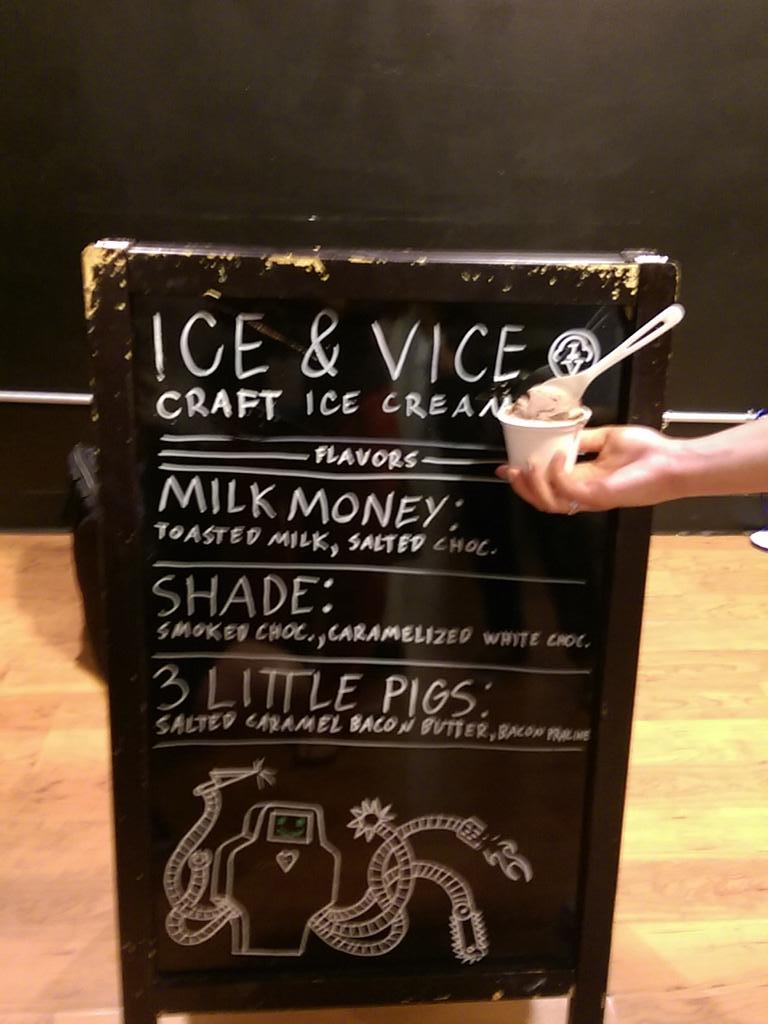 ICE & VICE
CRAFT ICE CREAM
FLAVORS
MILK MONEY:
TOASTED MILK, SALTED CHOC.
SHADE:
SMOKED CHOC., CARAMELIZED WHITE CHOC.
3 LITTLE PIGS:
SALTED CARAMEL BACON BUTTER, BACON PRALINE